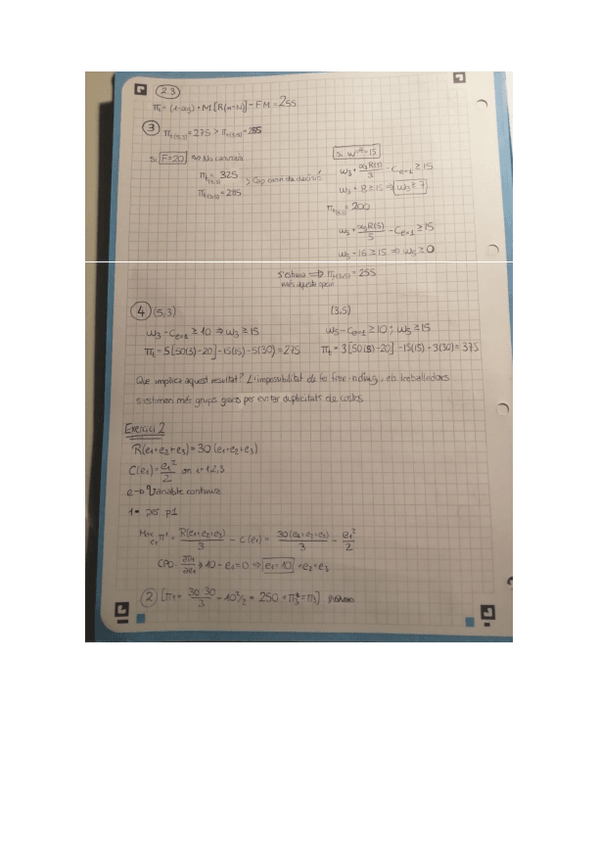 2.3
π₁ = (1-α₃) + M[R(n-N)] - FM = 255
③ π₁(5,3) = 275 > π₁(3,5) = 255
Si F=20 ⇒ No canvia
π₁(5,3) = 325
π₁(3,5) = 285
Si w=15
w₃ + α₃R(3)/3 - Ce=1 ≥ 15
w₃ + 8 ≥ 15 ⇒ w₃ ≥ 7
π₁(5,3) = 200
w₅ + α₅R(5)/5 - Ce=1 ≥ 15
w₅ + 16 ≥ 15 ⇒ w₅ ≥ 0
S'estima ⇒ π₁(3,5) = 255
més aquesta opció
④ (5,3)
w₃ - Ce=1 ≥ 10 ⇒ w₃ ≥ 15
π₁ = 5[50(3)-20] - 15(15) - 5(30) = 275
(3,5)
w₅ - Ce=1 ≥ 10; w₅ ≥ 15
π₁ = 3[50(5)-20] - 15(15) - 3(30) = 375
Que implica aquest resultat? L'impossibilitat de fer free-riding, els treballadors
s'estimen més grups grans per evitar duplicitats de costos
Exercici 2
R(e₁+e₂+e₃) = 30(e₁+e₂+e₃)
C(e₁) = e₁²/2 on i=1,2,3
e → Variable contínua
1 = per p1
Max e₁ π¹ = R(e₁+e₂+e₃)/3 - C(e₁) = 30(e₁+e₂+e₃)/3 - e₁²/2
CPO: ∂π₁/∂e₁ → 10 - e₁ = 0 ⇒ e₁=10 = e₂ = e₃
② [π₁ = 30·30/3 - 10²/2 = 250 = π₂ = π₃]